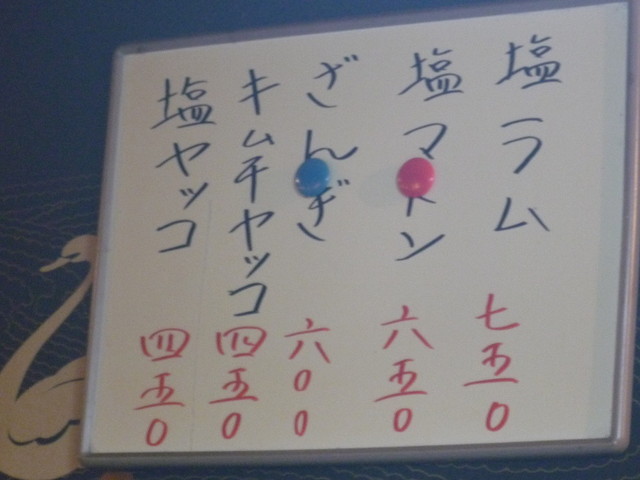 塩ラム 七五0
塩マトン 六五0
ざんぎ 六00
キムチヤッコ 四五0
塩ヤッコ 四五0